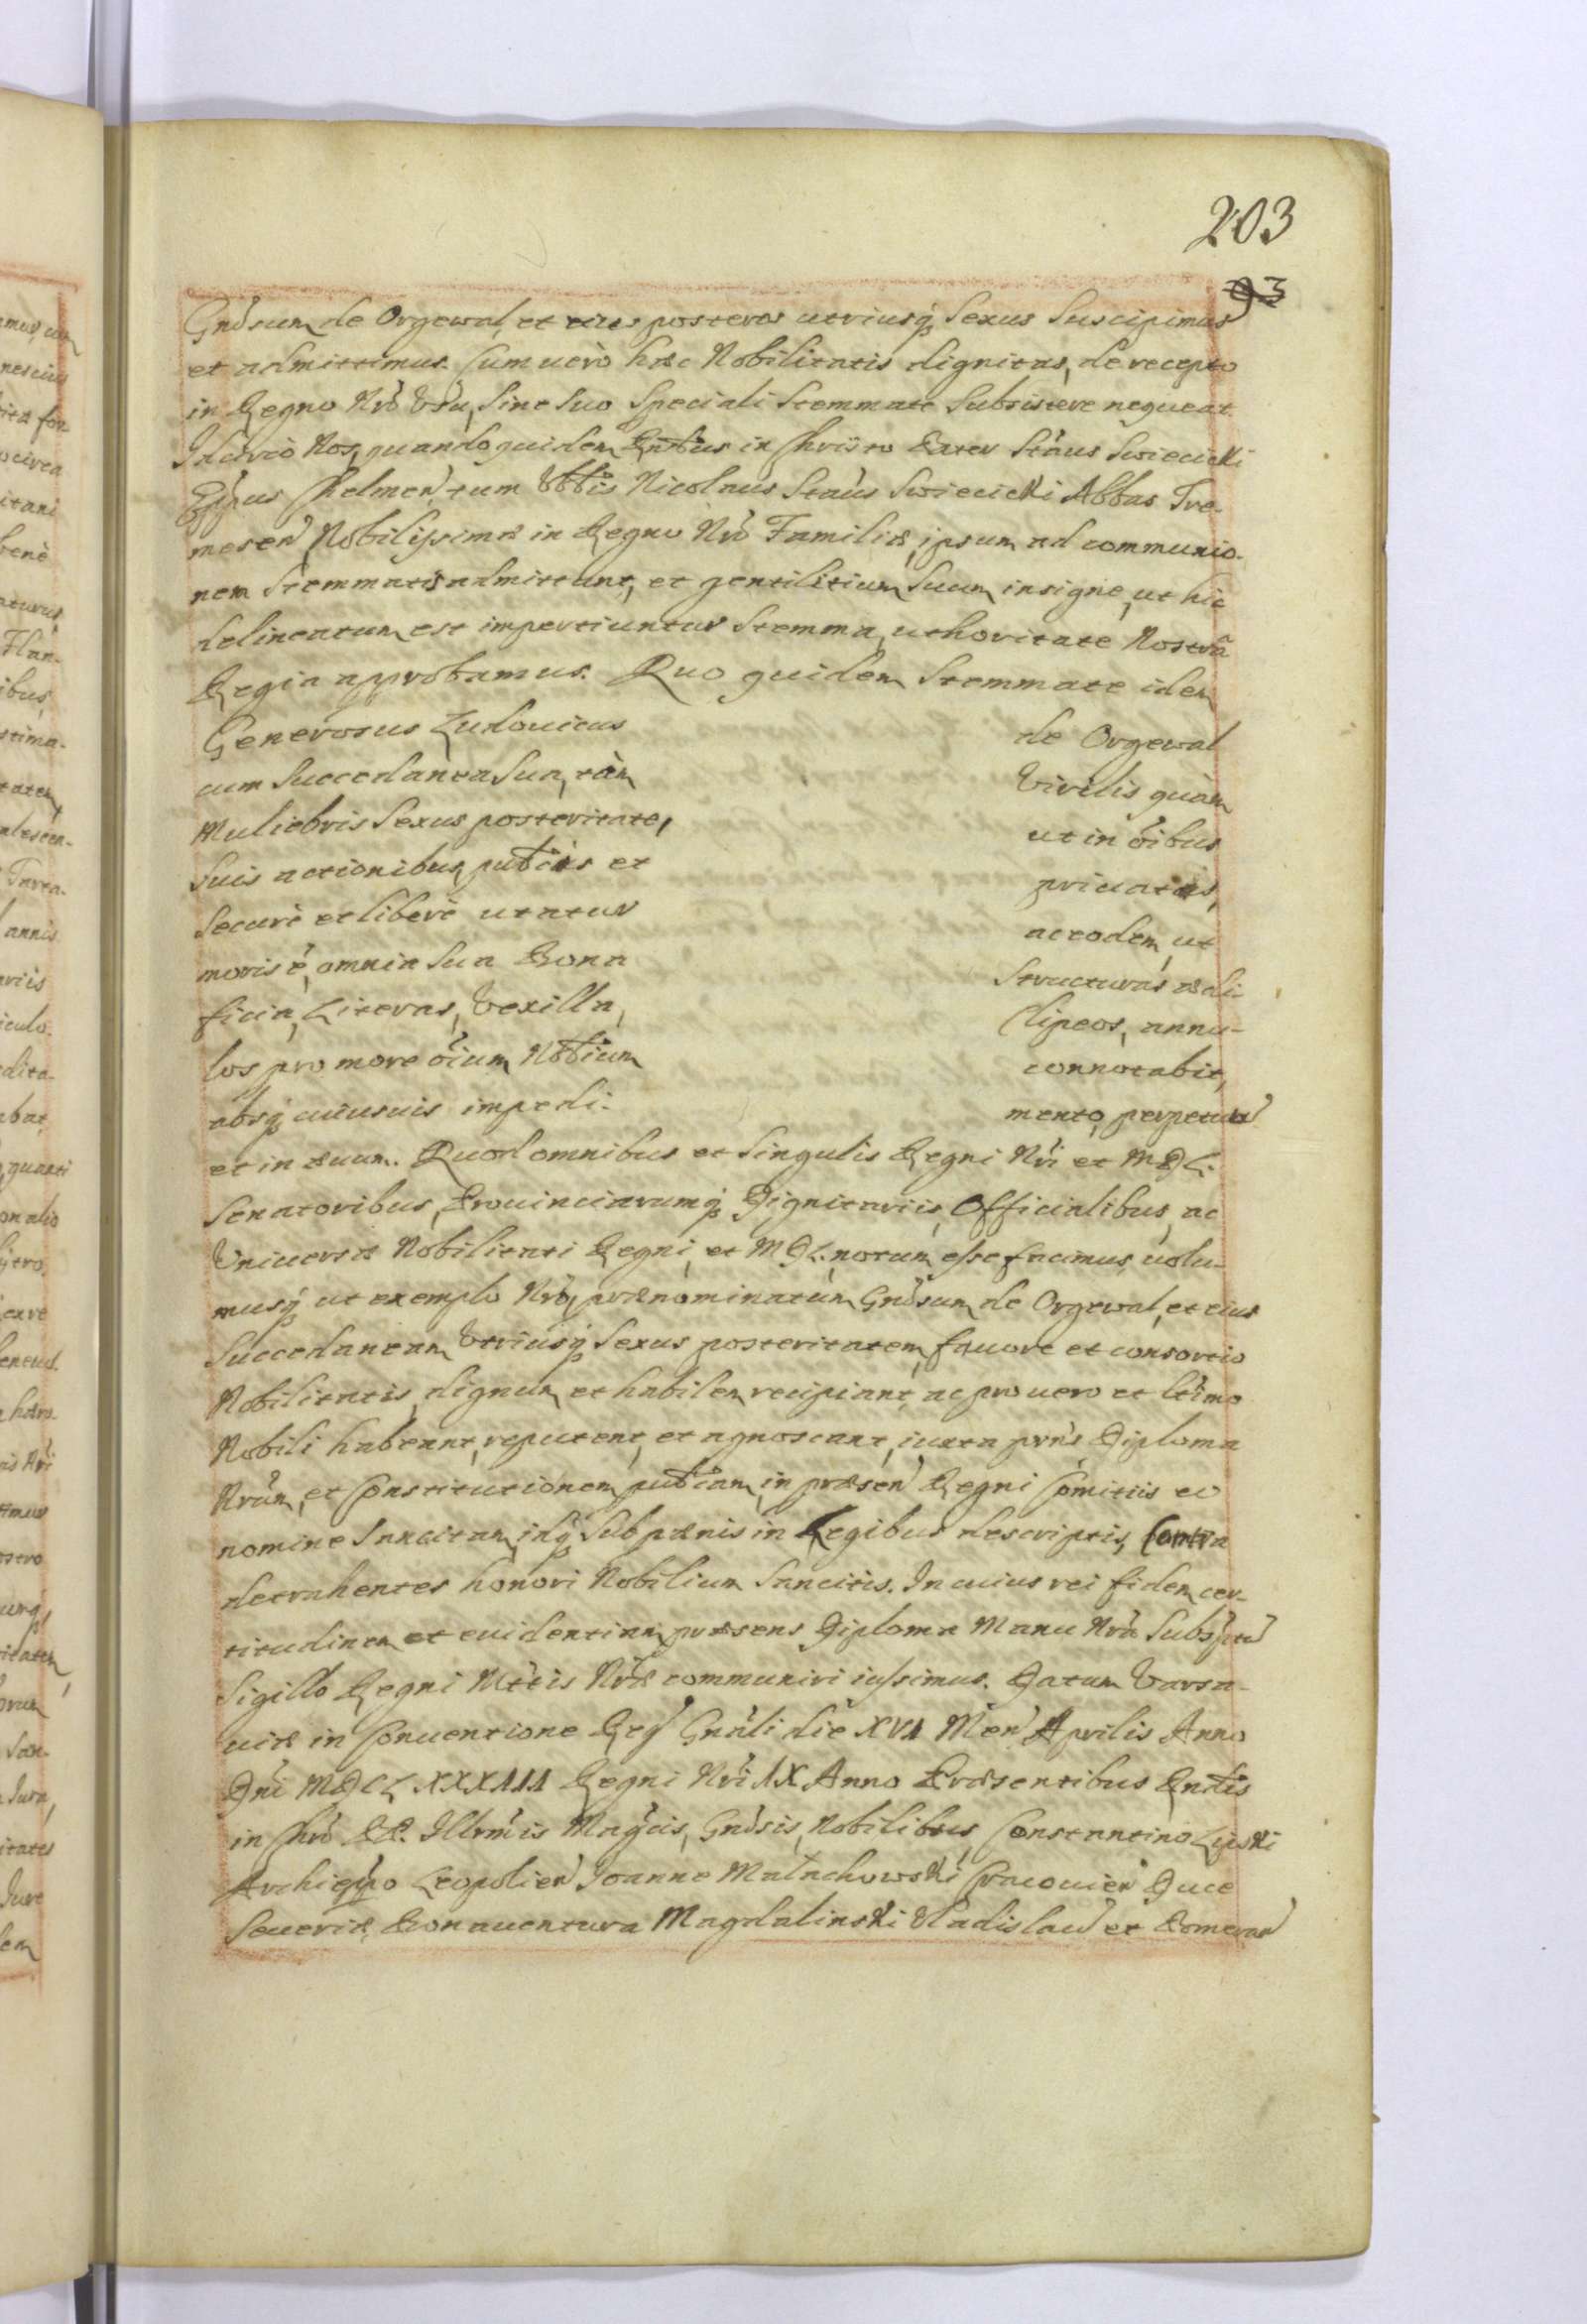 203
93
Gnõsum de Orgewal et eius posteros utriusq̃ Sexus Suscipimus
et admittimus. Cum uerò hæc Nobilitatis dignitas, de recepto
in Regno Nrõ Usu, Sine Suo Speciali Stemmate Subsistere nequeat.
Idcircò Nos, quandoquidem Rndus in Christo Pater Stãus Swiecicki
Eppus Chelmen̄ tum Vblis Nicolaus Stãus Swiecicki Abbas Tre-
mesen̄ Nobilissimæ in Regno Nrõ Familiæ, ipsum ad communio-
nem Stemmatis admittant, et gentilitium Suum insigne, ut hic
delineatum est impertiuntur Stemma, uthoritate Nostrâ
Regia approbamus. Quo quidem Stemmate idem
Generosus Ludouicus de Orgewal
cum Succedanea Sua, tàm Virilis quàm
Muliebris Sexus posteritate, ut in õibus
Suis actionibus publicis et priuatis,
Securè et liberè utatur ac eodem, ut
moris ẽ, omnia Sua Bona Structuras ædi-
ficia, Literas, Vexilla, Clipeos, annu-
los pro more õium Nobilium connotabit,
absq̃ cuiusuis impedi- mento, perpetuo
et in æuum. Quod omnibus et Singulis Regni Nri et M.D.L.
Senatoribus, Prouinciarumq̃ Dignitariis, Officialibus, ac
Vniuersæ Nobilitati Regni, et M.D.L. notum esse facimus uolu-
musq̃ ut exemplo Nrõ, prænominatum Gnõsum de Orgewal, et eius
Succedaneam Vtriusq̃ Sexus posteritatem, fauore et consortio
Nobilitatis, dignum et habilem recipiant, ac pro uero et ltimo
Nobili habeant, reputent, et agnoscant, iuxta pñs Diploma
Nrum, et Constitutionem publicam, in præsen̄ Regni Comitiis eo
nomine Sancitam, idq̃ Sub pænis in Legibus descriptis, Contra
detrahentes honori Nobilium Sancitis. In cuius rei fidem, cer-
titudinem et euidentiam, præsens Diploma Manu Nrã Subscptũ
Sigillo Regni Mttis Nræ communiri iussimus. Datum Varsa-
uiæ in Conuentione Reg̃ Gnãli die XVI Men̄ Aprilis Anno
Dni MDCLXXXIII Regni Nri IX Anno Præsentibus Rndis
in Chrõ PP. Illrmis Magcis, Gnõsis, Nobilibus, Constantino Lipski
Archieppo Leopolien̄ Joanne Małachowski Cracouien̄ Duce
Seueriæ, Bonauentura Magdalinski Vladislaũ et Pomeran̄